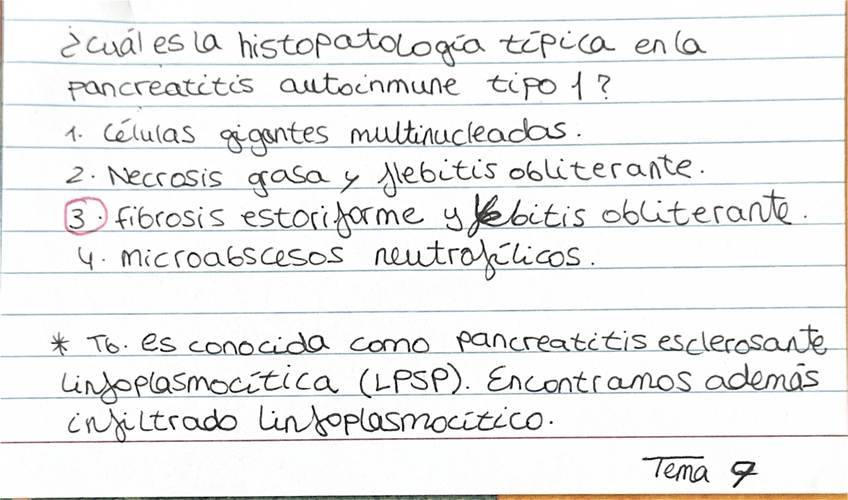 ¿cuál es la histopatología típica en la
pancreatitis autoinmune tipo 1?
1. Células gigantes multinucleadas.
2. Necrosis grasa y flebitis obliterante.
3. fibrosis estoriforme y flebitis obliterante.
4. microabscesos neutrofílicos.
* Tb. es conocida como pancreatitis esclerosante
linfoplasmocítica (LPSP). Encontramos además
infiltrado linfoplasmocítico.
Tema 9